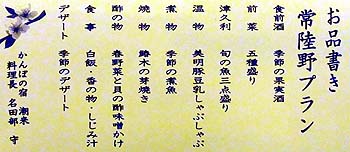 お品書き
常陸野プラン
食前酒 季節の果実酒
前菜 五種盛り
津久利 旬の魚三点盛り
温物 美明豚豆乳しゃぶしゃぶ
煮物 季節の煮魚
焼物 鰆木の芽焼き
酢の物 春野菜と貝の酢味噌かけ
食事 白飯・香の物・しじみ汁
デザート 季節のデザート
かんぽの宿 潮来
料理長 名田部 守